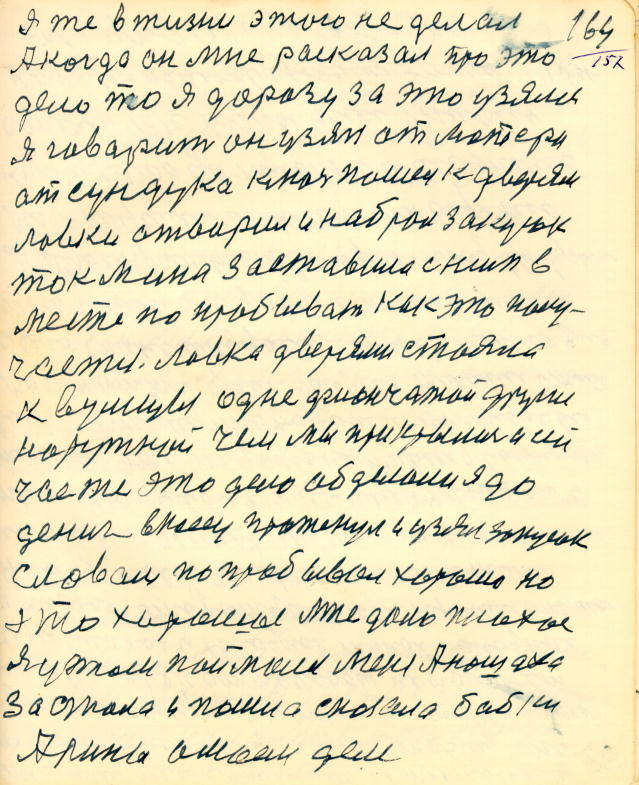 Я те в тизни этого не делал 164
А когда он мне расказал про это 157
дело то я доразу за это узялся
я говарит он узял от матери
от сундука ключ пошел к дверям
ловки отварил и набрал закусак
так Мина заставила с ним в
месте попробывать как это полу-
чается. Лавка дверями стояла
к вулицы одне другие
нарутной чем мы прикрылись и сей
час те это дело обделали я до
денег в кассу протенул и узял закусак
словам попробывал харашо но
это харошое мне дало плохое
я поймали меня
застала и пошла сказала бабки
Арины о моем деле